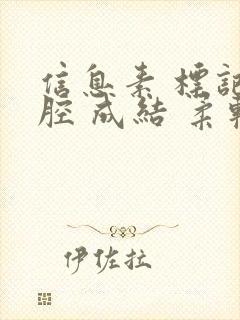 信息素 標記
腔 成結 柔
伊佐拉